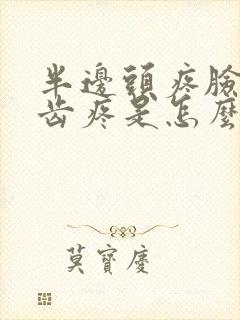 半邊頭疼臉
齒疼是怎麼
莫寶慶